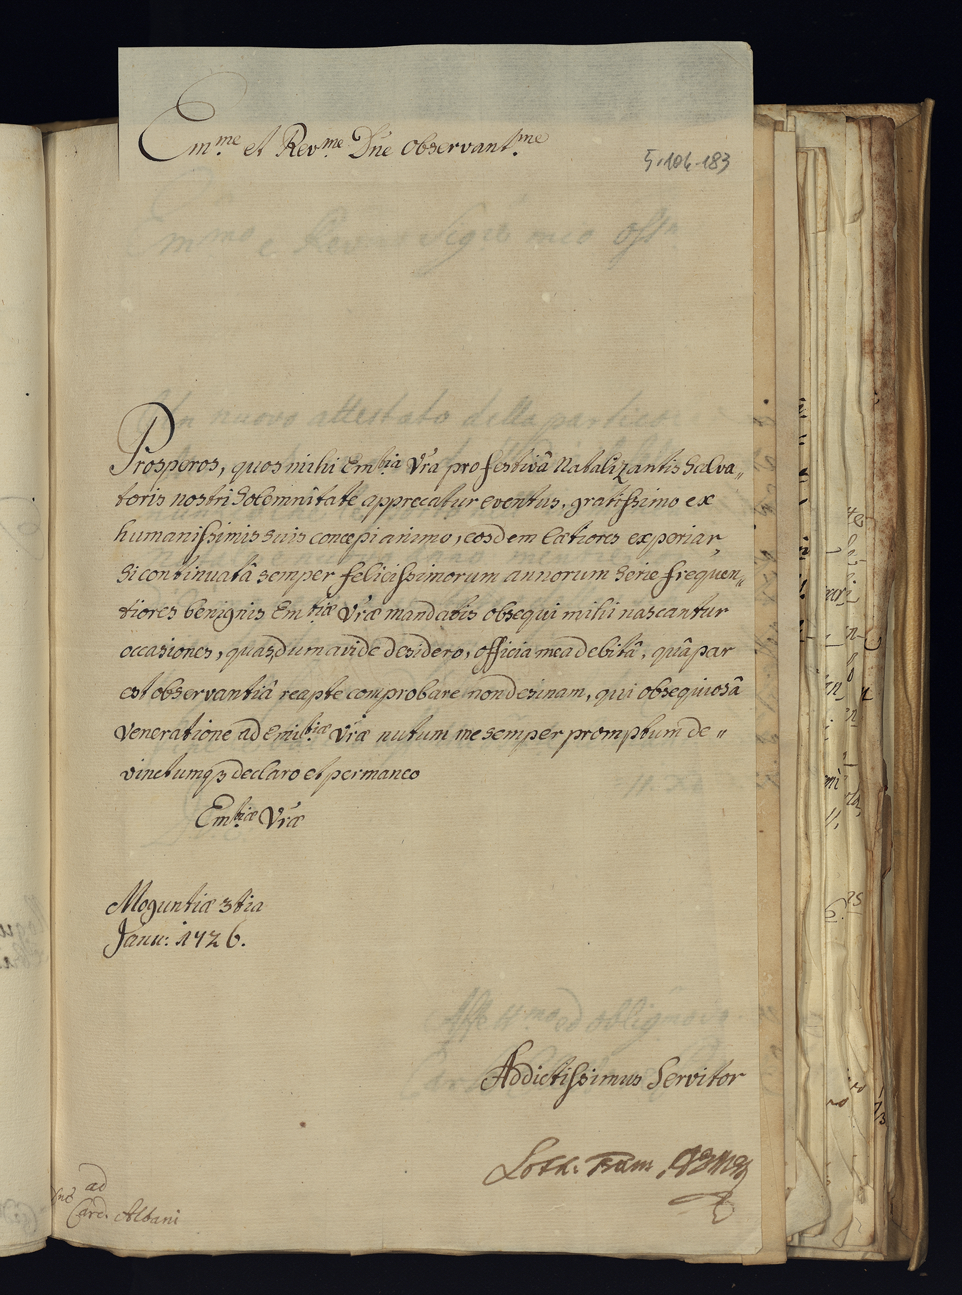 Em.me et Rev.me Dn̄e Observant.me
5.106.183
Prosperos, quos mihi Em.tia Vr̄a pro festivâ Natalizantis Salva„
toris nostri Solemnitate apprecatur eventus, gratissimo ex
humanissimis suis concepi animo, eosdem lætiores experiar,
si continuatâ semper felicissimorum annorum serie frequen„
tiores benignis Em.tiæ Vr̄æ mandatis obsequi mihi nascantur
occasiones, quas dum avide desidero, officia mea debitâ, quâ par
est observantiâ reapte comprobare non desinam, qui obsequiosâ
veneratione ad Emi.tiæ Vr̄æ nutum me semper promptum de„
vinctumq3 declaro et permaneo
Em.tiæ Vr̄æ
Moguntiæ 3tia
Janu: 1726.
Addictissimus Servitor
Loth: Fran:
ad
Card. Albani